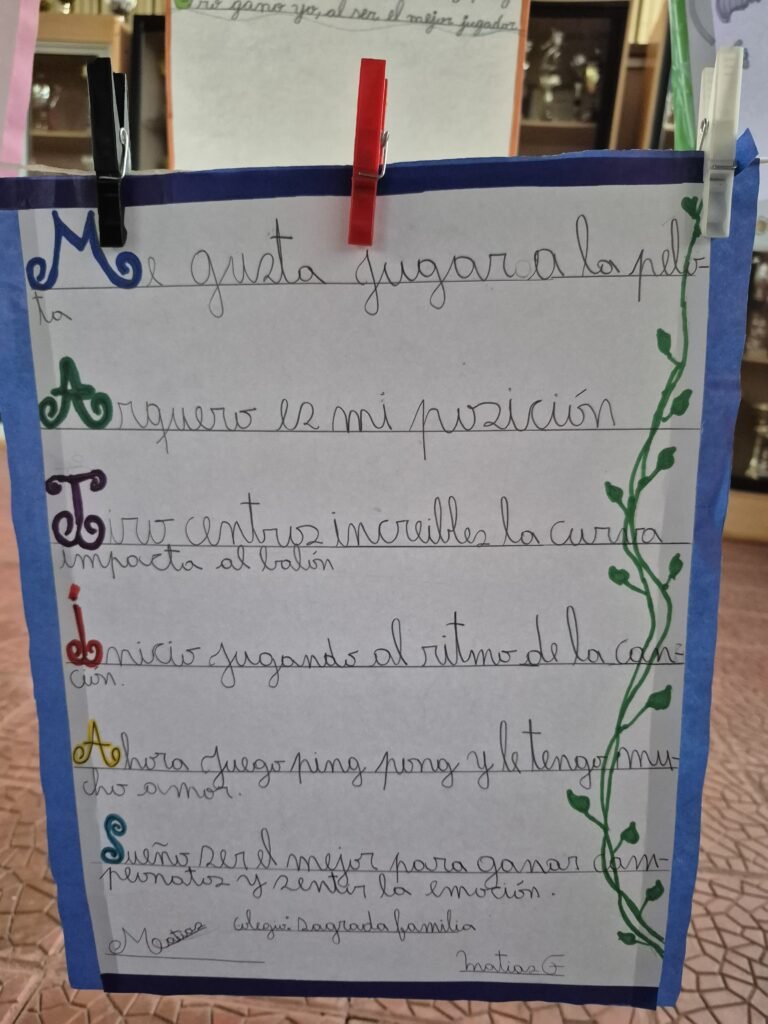 iro gano yo, al ser el mejor jugador
Me gusta jugar a la pelo-
ta
Arquero es mi posición
Tiro centros increibles la curva
impacta al balón
Inicio jugando al ritmo de la can-
ción.
Ahora juego ping pong y le tengo mu-
cho amor.
Sueño ser el mejor para ganar cam-
peonatos y sentir la emoción.
Matias Colegio: Sagrada familia
Matias G